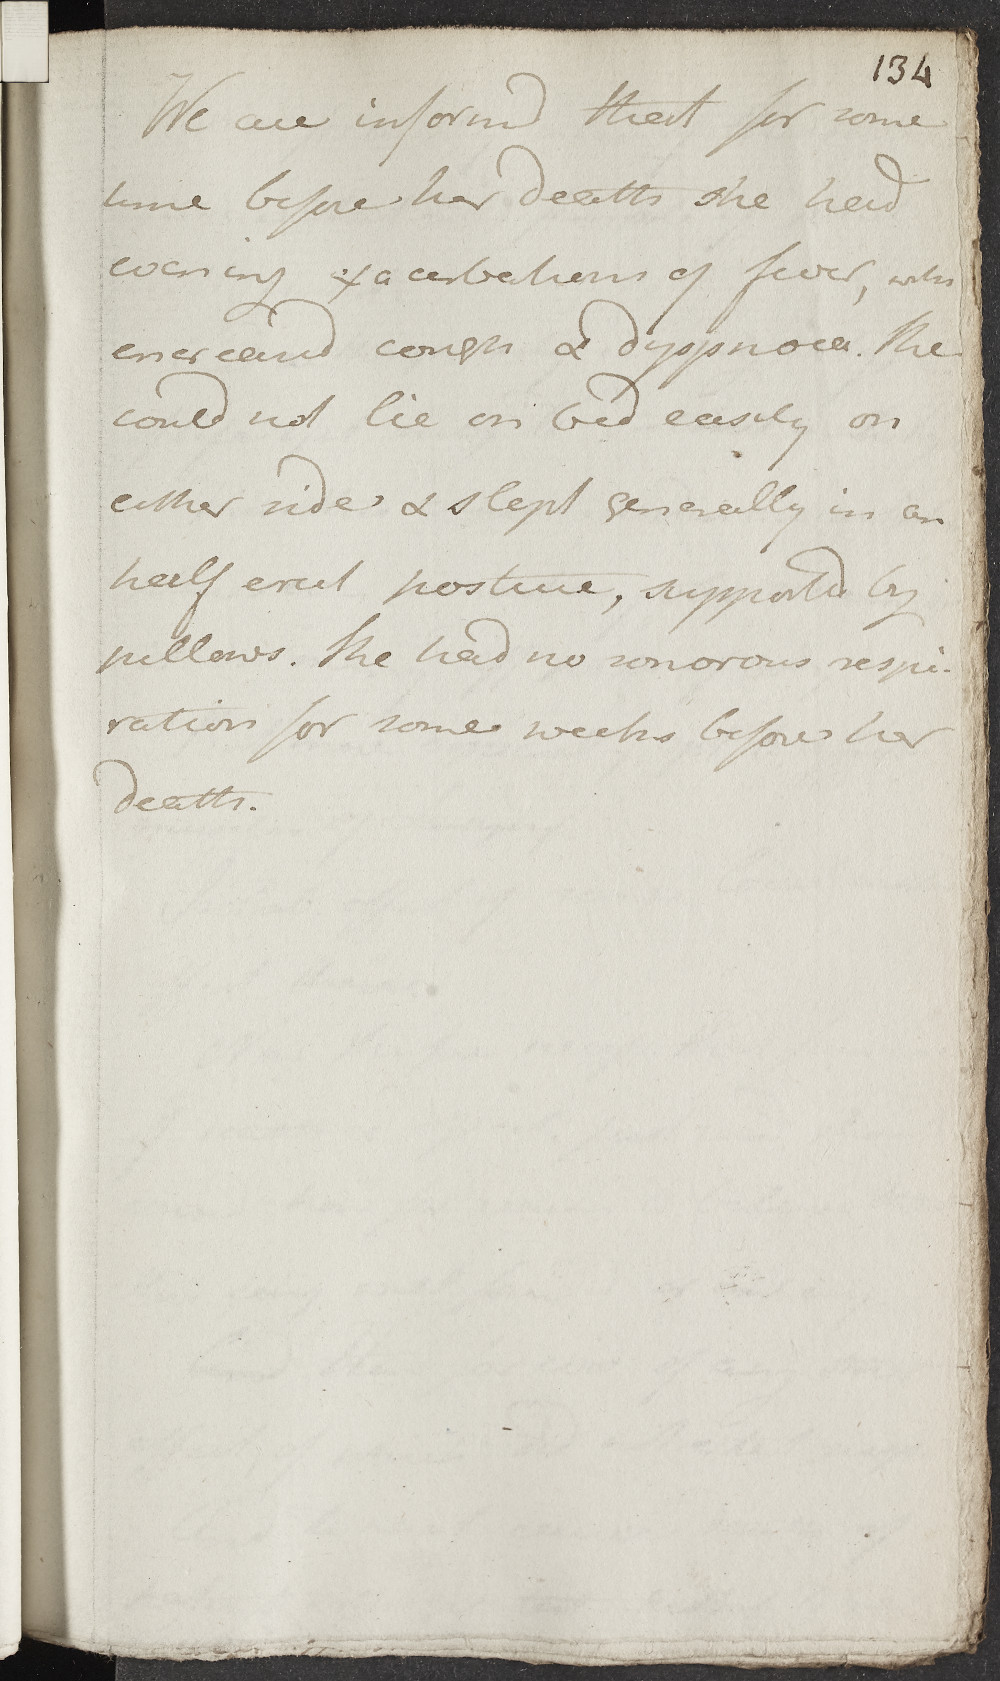 134
We are informd that for some
time before her death she had
evening exacerbations of fever, with
encreasd cough & dyspnoea. She
could not lie in bed easily on
either side & slept generally in an
half erect posture, supported by
pillows. She had no sonorous respi-
ration for some weeks before her
death.